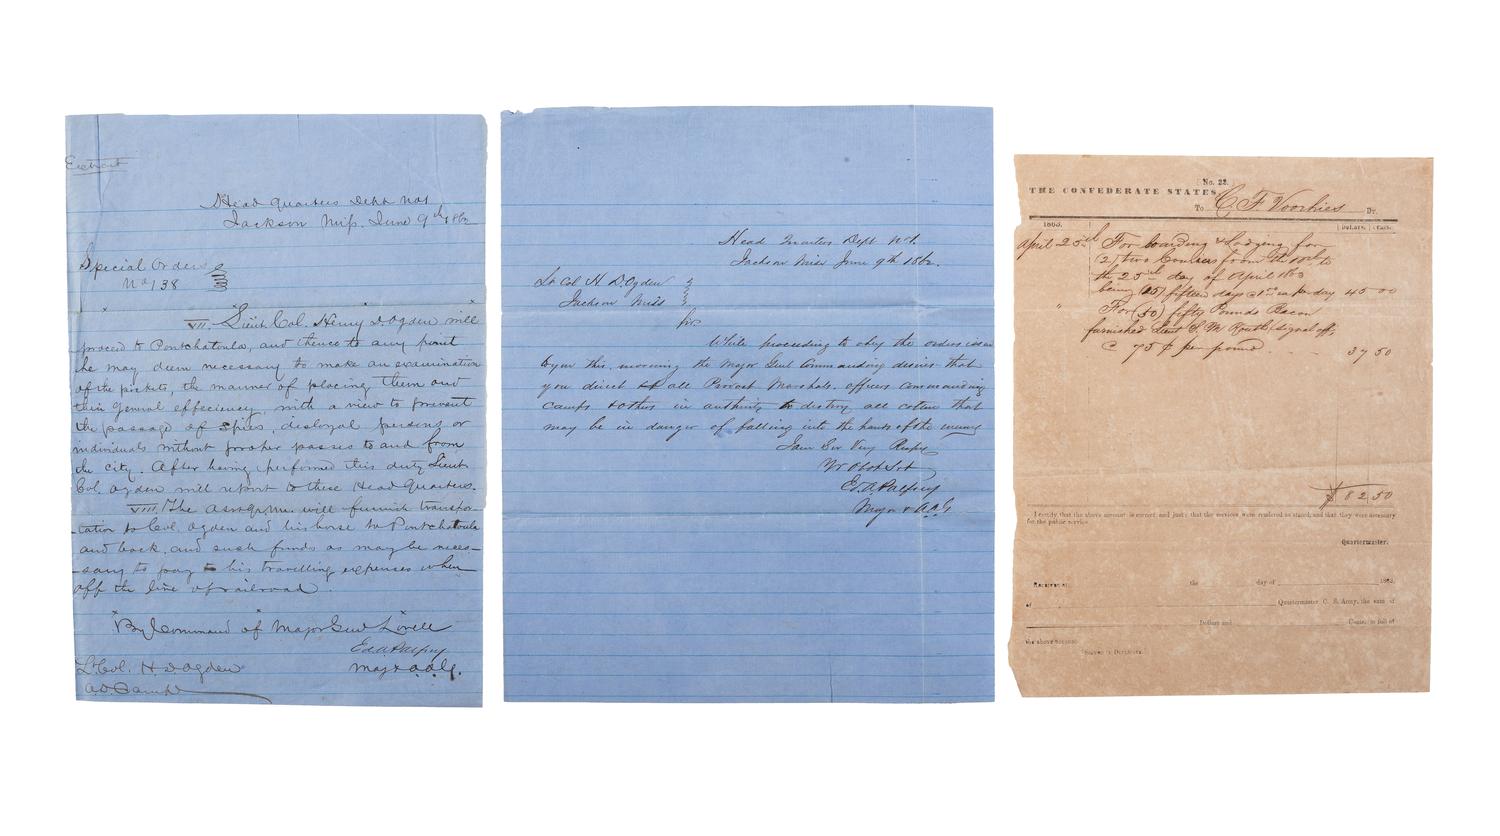 Extract
Head Quarters Dept No 1
Jackson Miss. June 9th 1862
Special Orders
No 138
VII. Lieut. Col. Henry D. Ogden will
proceed to Pontchatoula, and thence to any point
he may deem necessary to make an examination
of the pickets, the manner of placing them and
their general effeciency, with a view to prevent
the passage of spies, disloyal persons or
individuals without proper passes to and from
the city. After having performed this duty Lieut
Col. Ogden will report to these Head Quarters.
VIII. The will furnish transpor-
tation to Col. Ogden and his horse to Pontchatoula
and back, and such funds as may be neces-
-sary to pay his travelling expenses when
off the line of railroad.
By Command of Major Genl Lovell
Ed. A. Palfrey
Maj & A.A.G.
Lt Col. H. D. Ogden
A.D. Camp
Head Quarters Dept No 1.
Jackson Miss June 9th 1862.
Lt Col H D. Ogden
Jackson Miss
Sir
While proceeding to obey the orders issued
to you this morning the Major Genl Commanding desires that
you direct all Provost Marshals, officers commanding
camps & others in authority to destroy all cotton that
may be in danger of falling into the hands of the enemy
I am Sir Very Respy
Yr Obdt Svt
Ed. A. Palfrey
Major & A.A.G.
No. 22.
THE CONFEDERATE STATES,
To C F Voorhies Dr.
1863. DOLLARS. CENTS.
April 25th For boarding & lodging for
(2) two Couriers from the 10th to
the 25th day of April 1863
being (15) fifteen days @ per day 45 00
" For (50) fifty Pounds Bacon
furnished Lieut S. M Routh, Signal off,
@ 75 ¢ per pound 37 50
$82.50
I certify that the above account is correct and just; that the services were rendered as stated, and that they were necessary
for the public service.
Quartermaster.
Received at the day of 1863,
of Quartermaster C. S. Army, the sum of
Dollars and Cents, in full of
the above account.
Signed in Duplicate.